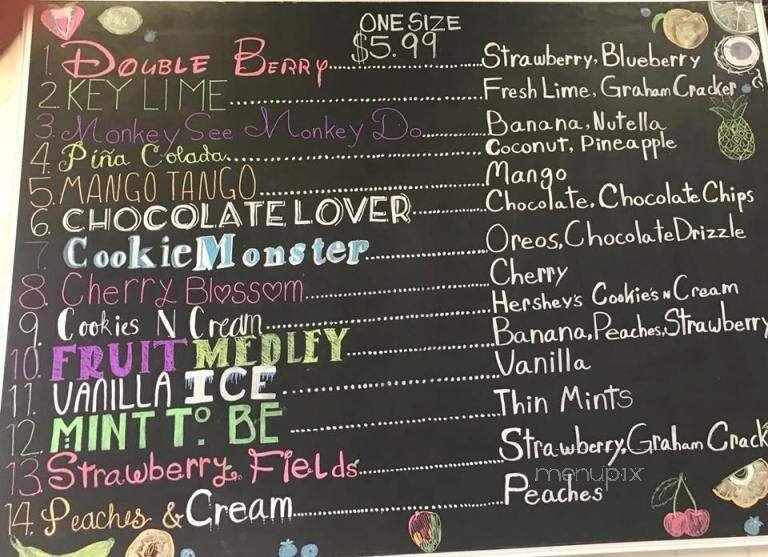 ONE SIZE
$5.99
1. Double Berry Strawberry, Blueberry
2. KEY LIME Fresh Lime, Graham Cracker
3. Monkey See Monkey Do Banana, Nutella
4. Piña Colada Coconut, Pineapple
5. MANGO TANGO Mango
6. CHOCOLATE LOVER Chocolate, Chocolate Chips
7. Cookie Monster Oreos, Chocolate Drizzle
8. Cherry Blossom Cherry
9. Cookies N Cream Hershey's Cookie's N Cream
10. FRUIT MEDLEY Banana, Peaches, Strawberry
11. VANILLA ICE Vanilla
12. MINT To BE Thin Mints
13. Strawberry Fields Strawberry, Graham Crack
14. Peaches & Cream Peaches
menupix